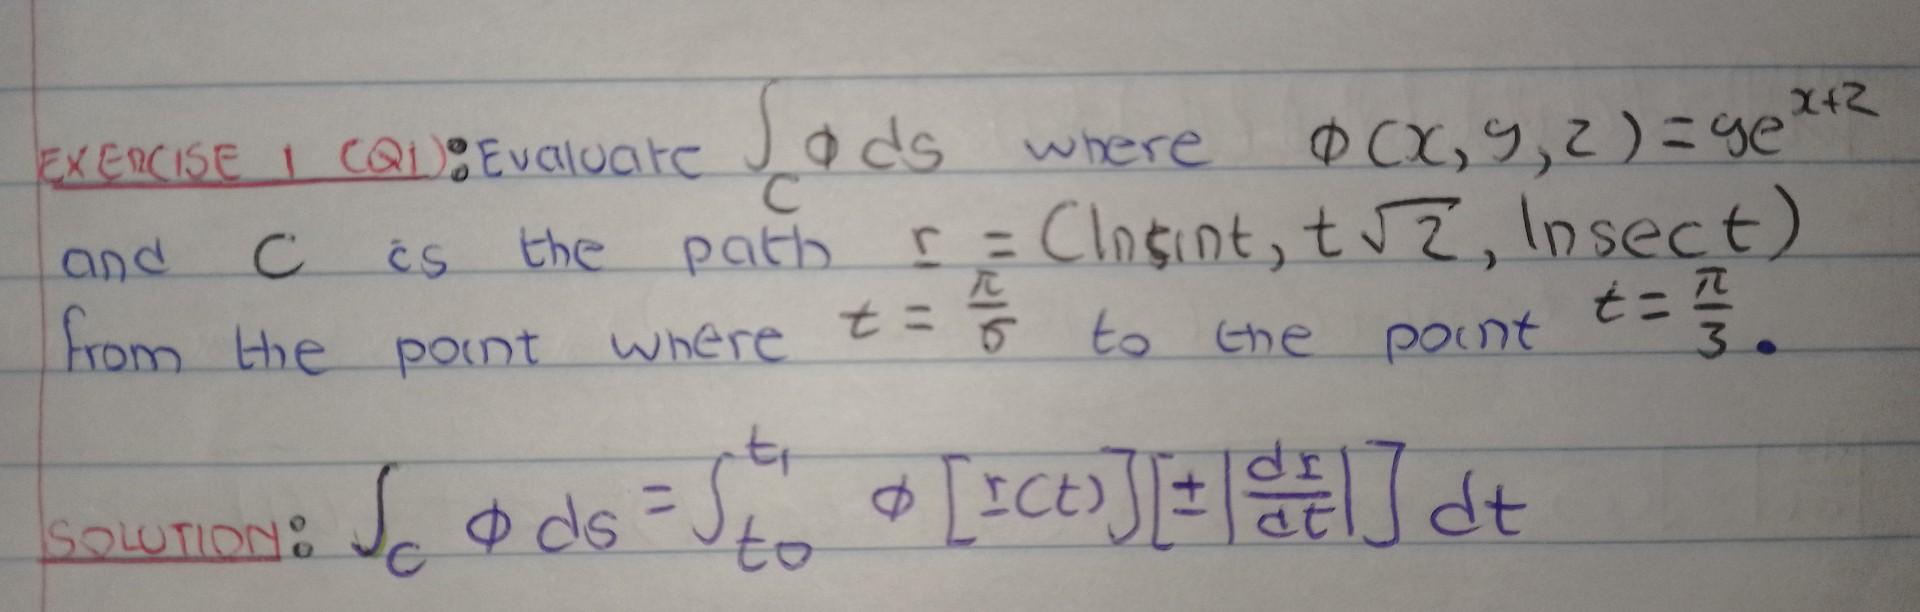 EXERCISE 1 (Q1): Evaluate ∫_C ϕ ds where ϕ(x, y, z) = ye^{x+z}
and C is the path r = (lnsint, t√2, lnsect)
from the point where t = π/6 to the point t = π/3.
SOLUTION: ∫_C ϕ ds = ∫_{t0}^{t1} ϕ [r(t)] [± |dr/dt|] dt